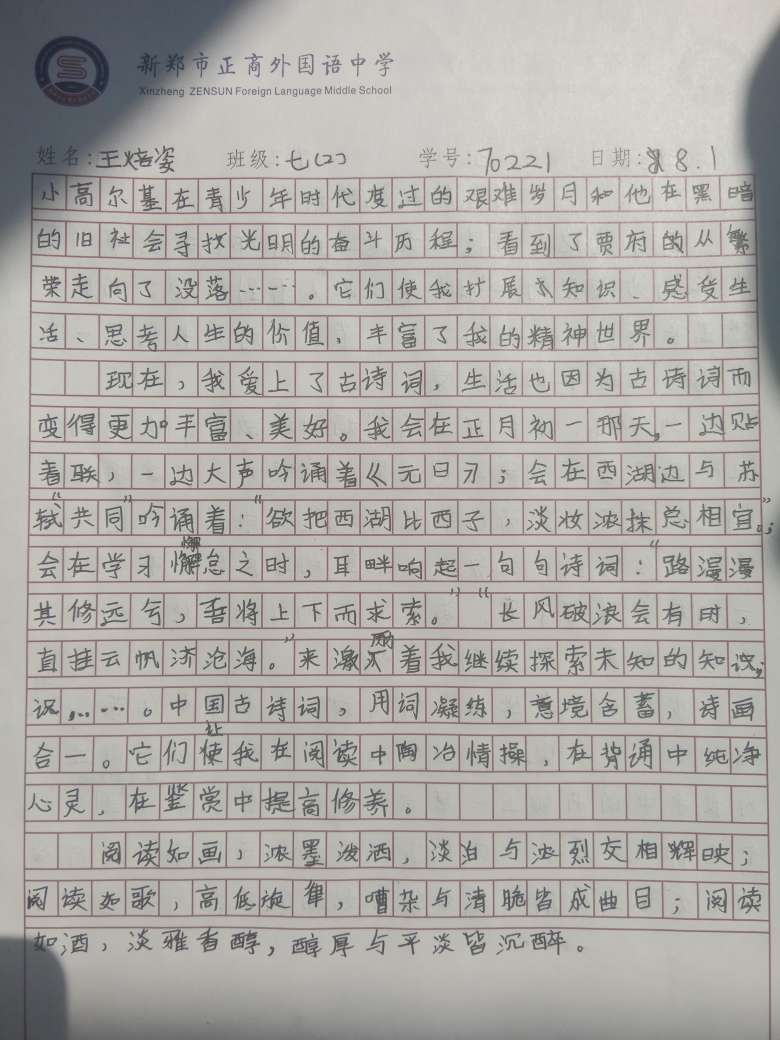 新郑市正商外国语中学
Xinzheng ZENSUN Foreign Language Middle School
姓名:王焙姿 班级:七(2) 学号:70221 日期:8.1
小高尔基在青少年时代度过的艰难岁月和他在黑暗
的旧社会寻找光明的奋斗历程；看到了贾府的从繁
荣走向了没落……。它们使我扩展知识、感受生
活、思考人生的价值，丰富了我的精神世界。
现在，我爱上了古诗词，生活也因为古诗词而
变得更加丰富、美好。我会在正月初一那天，一边贴
着联，一边大声吟诵着《元日》；会在西湖边与苏
轼“共同”吟诵着：“欲把西湖比西子，淡妆浓抹总相宜。”；
会在学习懈怠之时，耳畔响起一句句诗词：“路漫漫
其修远兮，吾将上下而求索。”“长风破浪会有时，
直挂云帆济沧海。”来激励着我继续探索未知的知识；
识……。中国古诗词，用词凝练，意境含蓄，诗画
合一。它们让我在阅读中陶冶情操，在背诵中纯净
心灵，在鉴赏中提高修养。
阅读如画，浓墨泼洒，淡泊与浓烈交相辉映；
阅读如歌，高低旋律，嘈杂与清脆皆成曲目；阅读
如酒，淡雅香醇，醇厚与平淡皆沉醉。